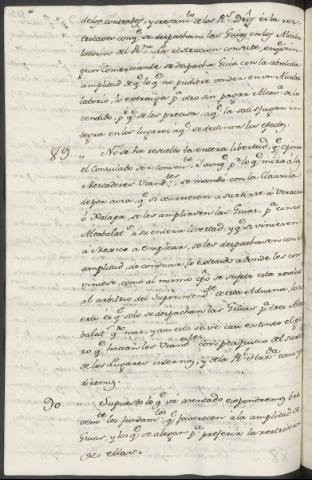 de los contratos, y cresam.to de los R.s Dros es la res-
triccion con q.e se despachan las Guias en los Alcaba
latorios del Rno. La restriccion consiste, en q.e ni
à un Comerciante se despacha Guia con la absoluta
amplitud de q.e lo q.e no pudiere vender en un Alcaba
latorio, lo extraiga p.a otro sin pagar Alcav.a de lo
vendido, p.r q.e se les precisa, a q.e la satisfagan in
tegra en los lugares à q.e se destinan los efectos.
89. No se ha resuelto la entera libertad, q.e opina
el Consulado ser conven.te y aunq.e p.r lo q.e mira à los
Mercaderes Viand.tes se mandò con la clausula
de por aora, q.e si ocurriesen a surtirse à Veracruz
ò Xalapa, se les ampliasen las Guias, p.a cinco
Alcabalat.s a su entera libertad, y q.e si viniesen
à Mexico a emplear, se les despachasen con
amplitud, de conducir lo extraido adonde les con
viniese, como al mismo tpo se sugetò esta
al arbitrio del Superintend.te de esta Aduana,
q.e solo se despachan las Guias p.a tres Alca
balat.s no mas, y con esto se ve casi extinto el gi
ro q.e hacian los Viand.tes con perjuicio del surtim.to
de los lugares internos, y de la R.l Haz.da como
diremos.
90. Supuesto lo q.e va asentado expondremos bre
vem.te los fundam.tos q.e favorecen à la amplitud de
Guias, y los q.e se alegan p.a preferir la restriccion
de ellas.